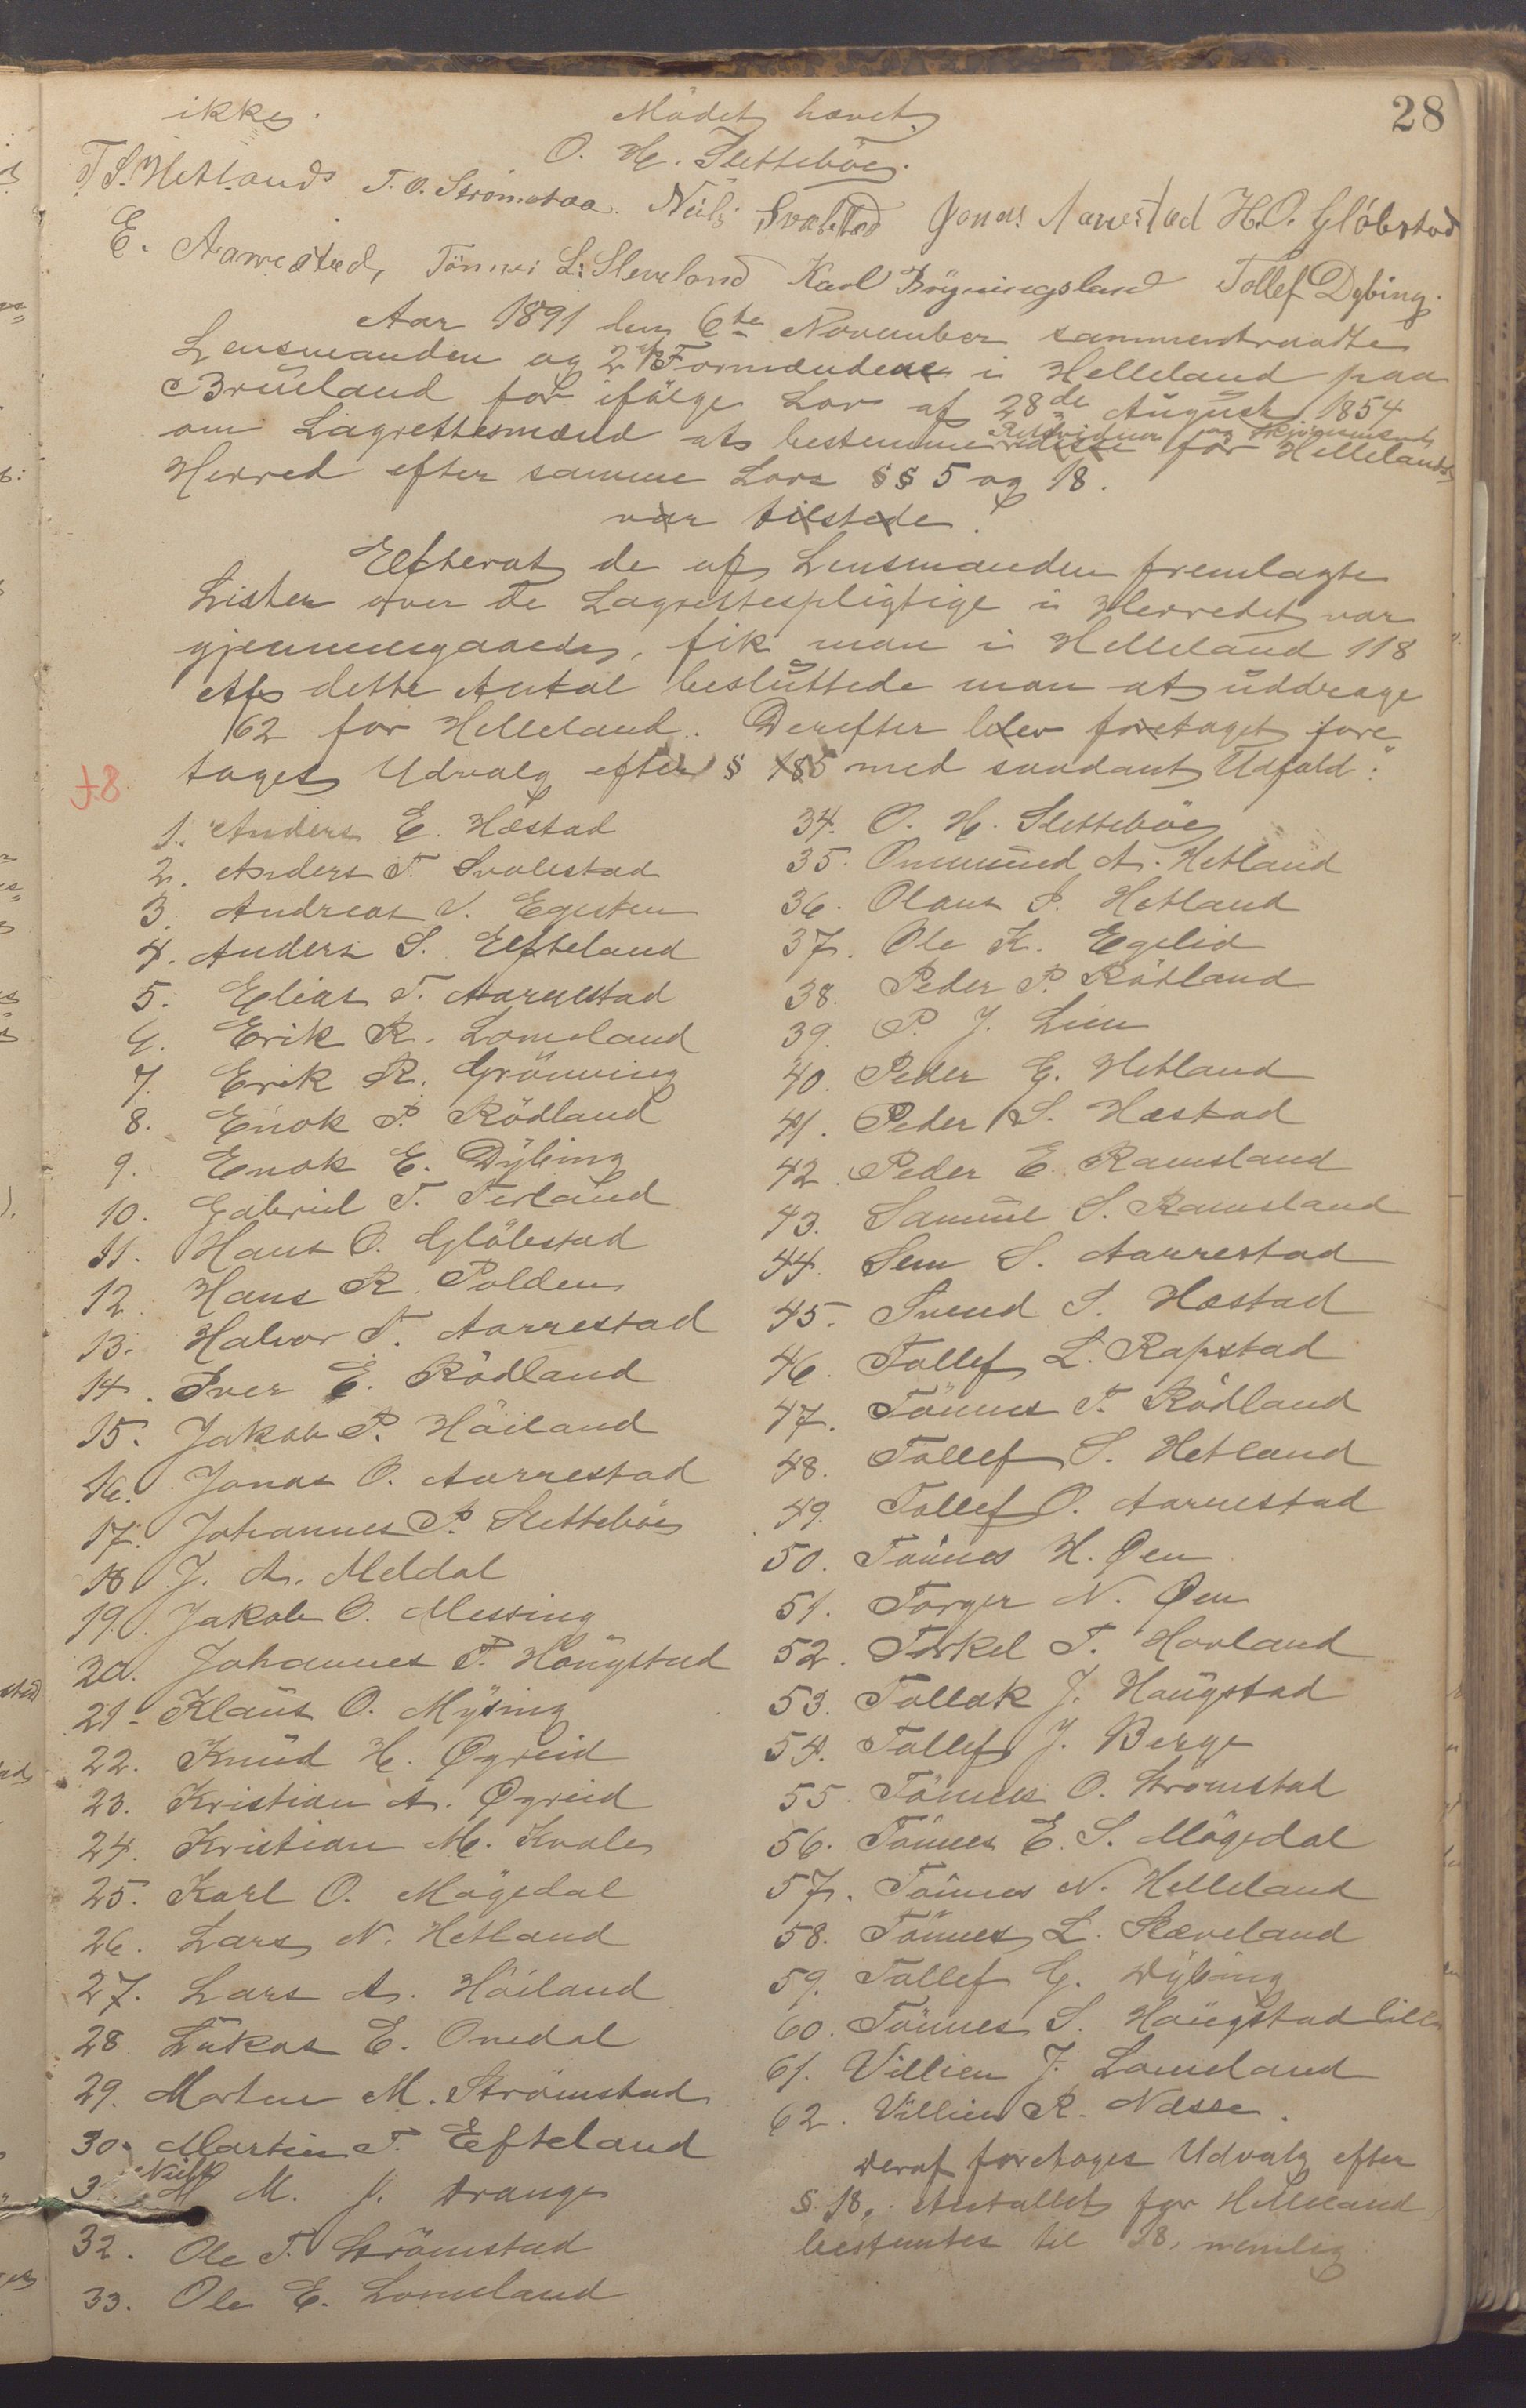 28
ikke. Mödet hævet.
O. H. Sletteböe.
T. S. Hetland T. O. Strömstad. Nils Svalestad Jonas Aarrestad H. O. Glöbstad
E. Aarrestad, Tönnes L. Sleveland Karl Böyningsland Tollef Dybing.
Aar 1891 den 6te November sammentraadte
Lensmanden og 2de Formændene i Helleland paa
Brueland for ifölge Lov af 28de August 1854
om Lagrettesmænd at bestemme disse for Hellelands
Herred efter samme Lovs §§ 5 og 18.
var tilstede.
Efterat de af Lensmanden fremlagte
Lister over de Lagrettespligtige i Herredet var
gjennemgaaede, fik man i Helleland 118
Af dette Antal besluttede man at uddrage
62 for Helleland. Derefter blev foretaget fore
tages Udvalg efter § 5 med saadant Udfald:
f.8.
1. Anders E. Hæstad
2. Anders T. Svalestad
3. Andreas S. Egesten
4. Anders S. Efteland
5. Elias T. Aarrestad
6. Erik R. Lomeland
7. Erik R. Grönning
8. Enok P. Rödland
9. Enok E. Dybing
10. Gabriel T. Terland
11. Hans O. Glöbstad
12. Hans R. Polden
13. Halvor T. Aarrestad
14. Iver E. Rödland
15. Jakob P. Höiland
16. Jonas O. Aarrestad
17. Johannes P. Sletteböe
18. J. A. Meldal
19. Jakob O. Messing
20. Johannes P. Haugstad
21. Klaus O. Mysing
22. Knud H. Øgreid
23. Kristian A. Øgreid
24. Kristian M. Kvale
25. Karl O. Mögedal
26. Lars N. Hetland
27. Lars A. Höiland
28. Lukas E. Omdal
29. Morten M. Strömstad
30. Martin T. Efteland
3 Nils M. J. Drange
32. Ole T. Strömstad
33. Ole E. Lomeland
34. O. H. Sletteböe
35. Ommund A. Hetland
36. Olaus P. Hetland
37. Ole K. Egelid
38. Peder P. Rödland
39. P. J. Lien
40. Peder G. Hetland
41. Peder S. Hæstad
42. Peder E. Ramsland
43. Samuel S. Ramsland
44. Sem S. Aarrestad
45. Svend S. Hæstad
46. Tollef L. Rapstad
47. Tönnes T. Rödland
48. Tollef S. Hetland
49. Tollef O. Aarrestad
50. Tönnes H. Øen
51. Torger N. Øen
52. Torkel T. Hovland
53. Tollak J. Haugstad
54. Tollef J. Berge
55. Tönnes O. Strömstad
56. Tönnes E. S. Mögedal
57. Tönnes N. Helleland
58. Tönnes L. Slæveland
59. Tollef G. Dybing
60. Tönnes S. Haugstad lille
61. Villien J. Lomeland
62. Villien R. Næsse.
Deraf foretages Udvalg efter
§ 18, Antallet for Helleland
bestemtes til 18, nemlig: